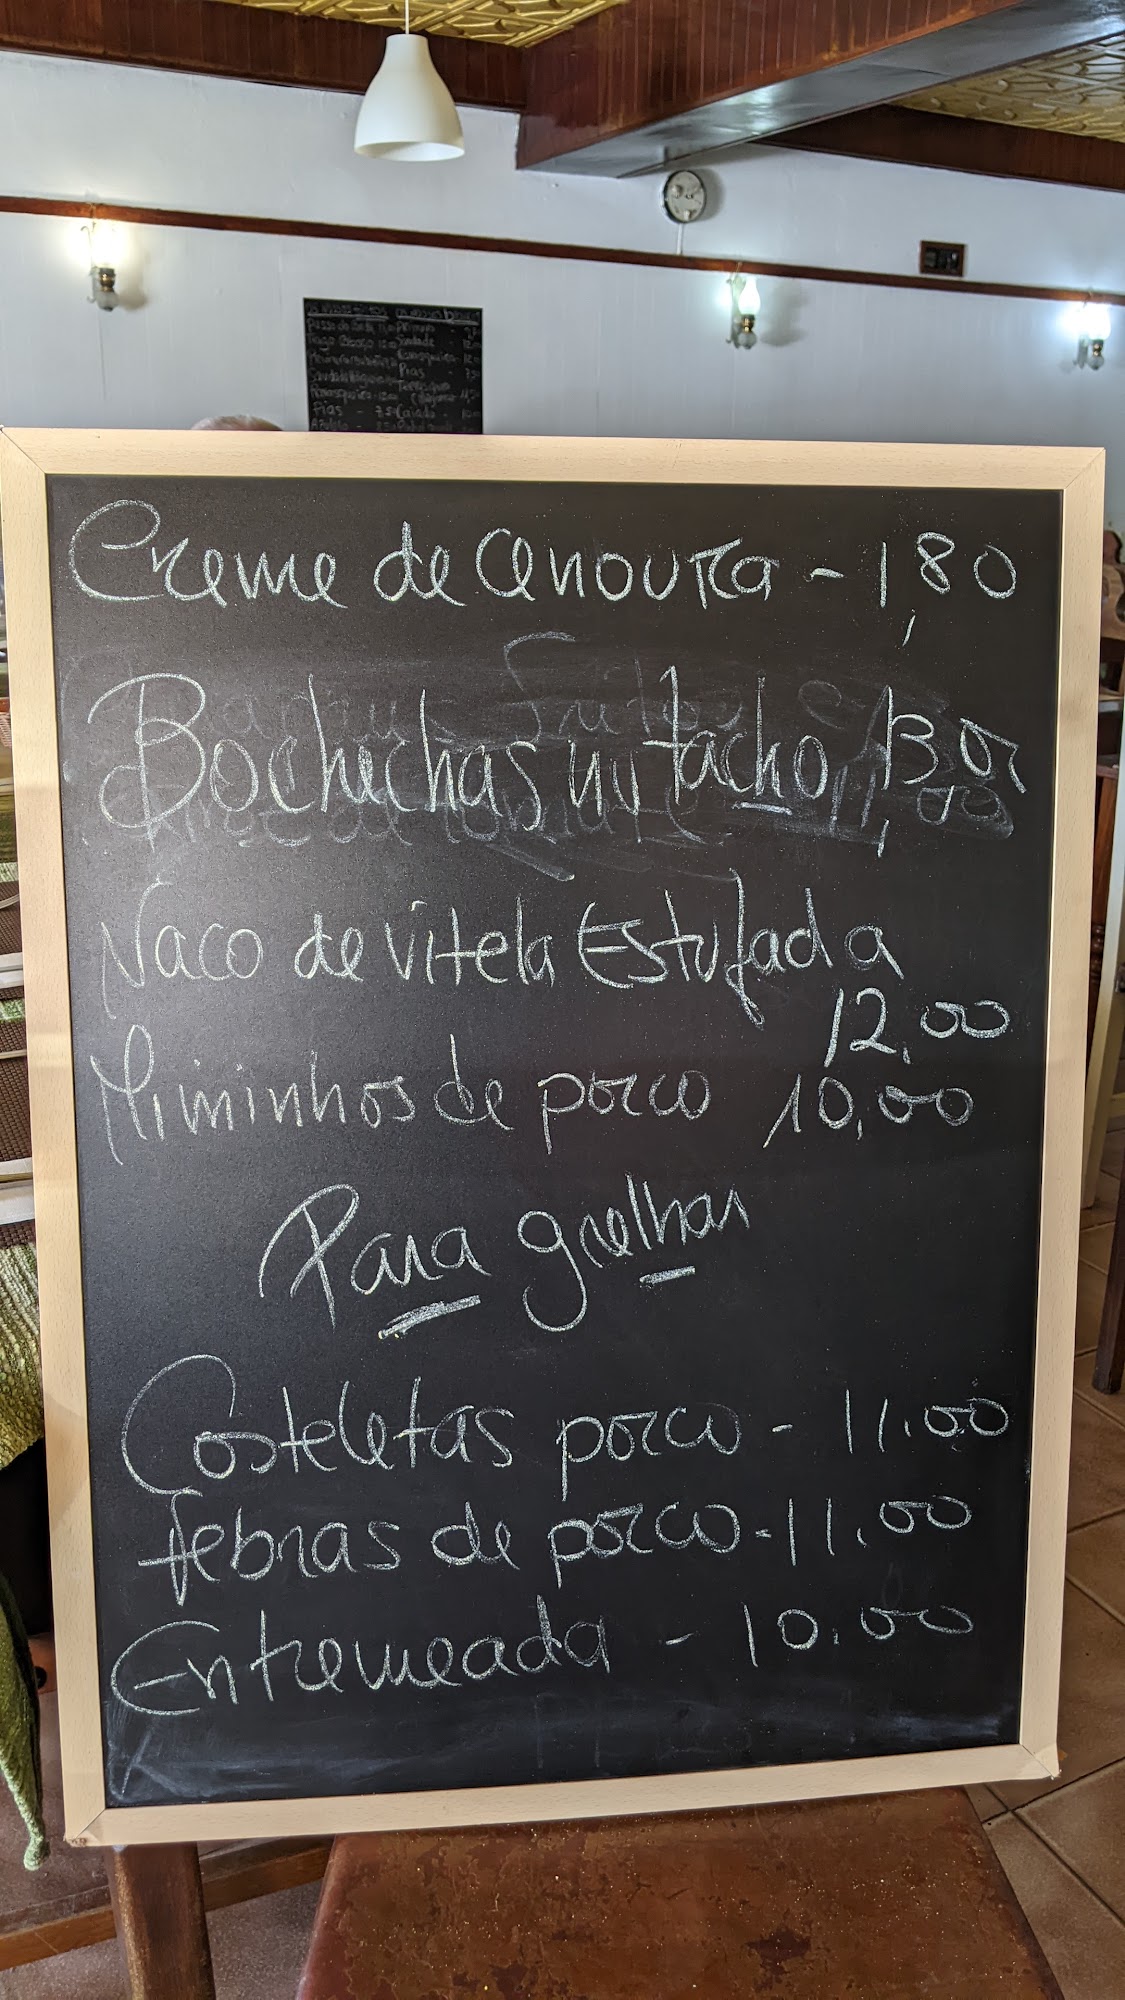 Creme de Cenoura - 1,80
Bochechas no tacho 13,00
Naco de vitela Estufada
12,00
Miminhos de porco 10,00
Para grelhar
Costeletas porco - 11.00
febras de porco - 11.00
Entremeada - 10.00